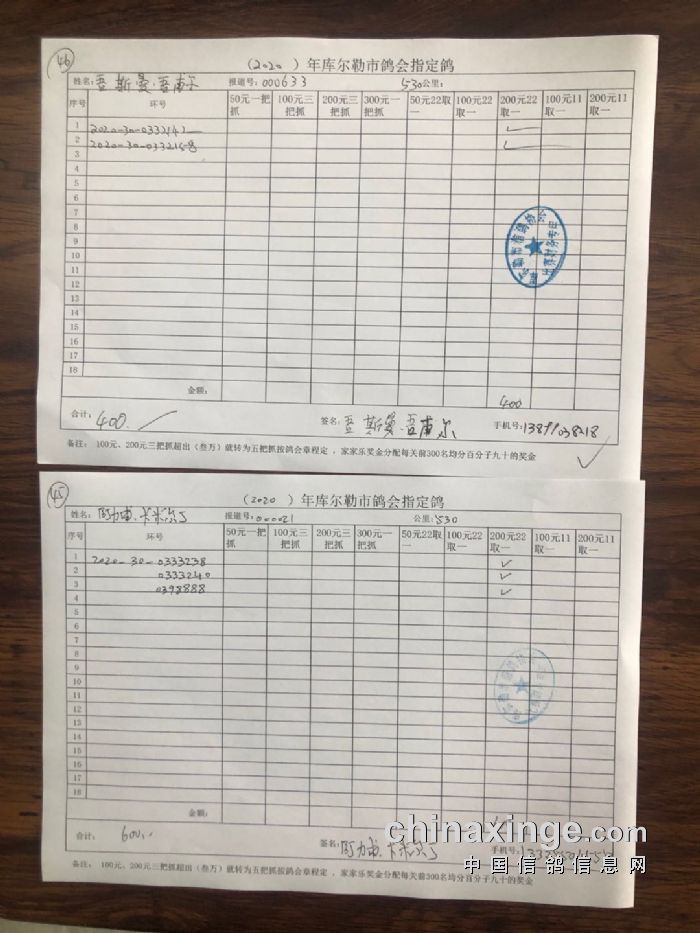 46
（2020 ）年库尔勒市鸽会指定鸽
姓名：吾斯曼·吾甫尔 报道号：000633 530公里：
序号 环号 50元一把抓 100元三把抓 200元三把抓 300元一把抓 50元22取一 100元22取一 200元22取一 100元11取一 200元11取一
1 2020-30-0332142 ✓
2 2020-30-0332158 ✓
3
4
5
6
7
8
9
10
11
12
13
14
15
16
17
18
金额： 400
合计：400. 签名：吾斯曼·吾甫尔 手机号：
备注： 100元、200元三把抓超出（叁万）就转为五把抓按鸽会章程定，家家乐奖金分配每关前300名均分百分子九十的奖金
45
（2020 ）年库尔勒市鸽会指定鸽
姓名： 报道号：000021 公里：530
序号 环号 50元一把抓 100元三把抓 200元三把抓 300元一把抓 50元22取一 100元22取一 200元22取一 100元11取一 200元11取一
1 2020-30-0333238 ✓
2 0333240 ✓
3 0398888 ✓
4
5
6
7
8
9
10
11
12
13
14
15
16
17
18
金额：
合计： 600.. 签名： 手机号：
备注： 100元、200元三把抓超出（叁万）就转为五把抓按鸽会章程定，家家乐奖金分配每关前300名均分百分子九十的奖金
chinaxinge.com
中国信鸽信息网